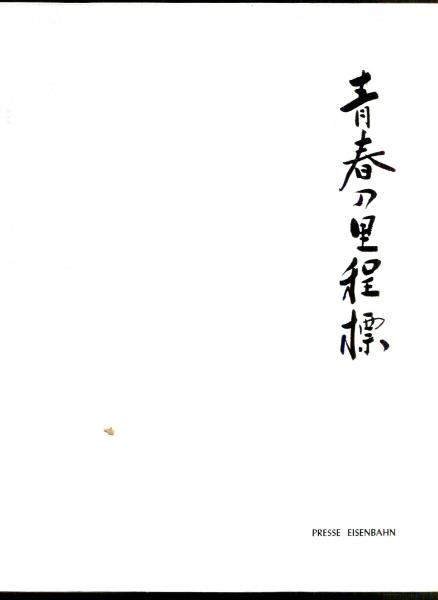 青春の里程標
PRESSE EISENBAHN